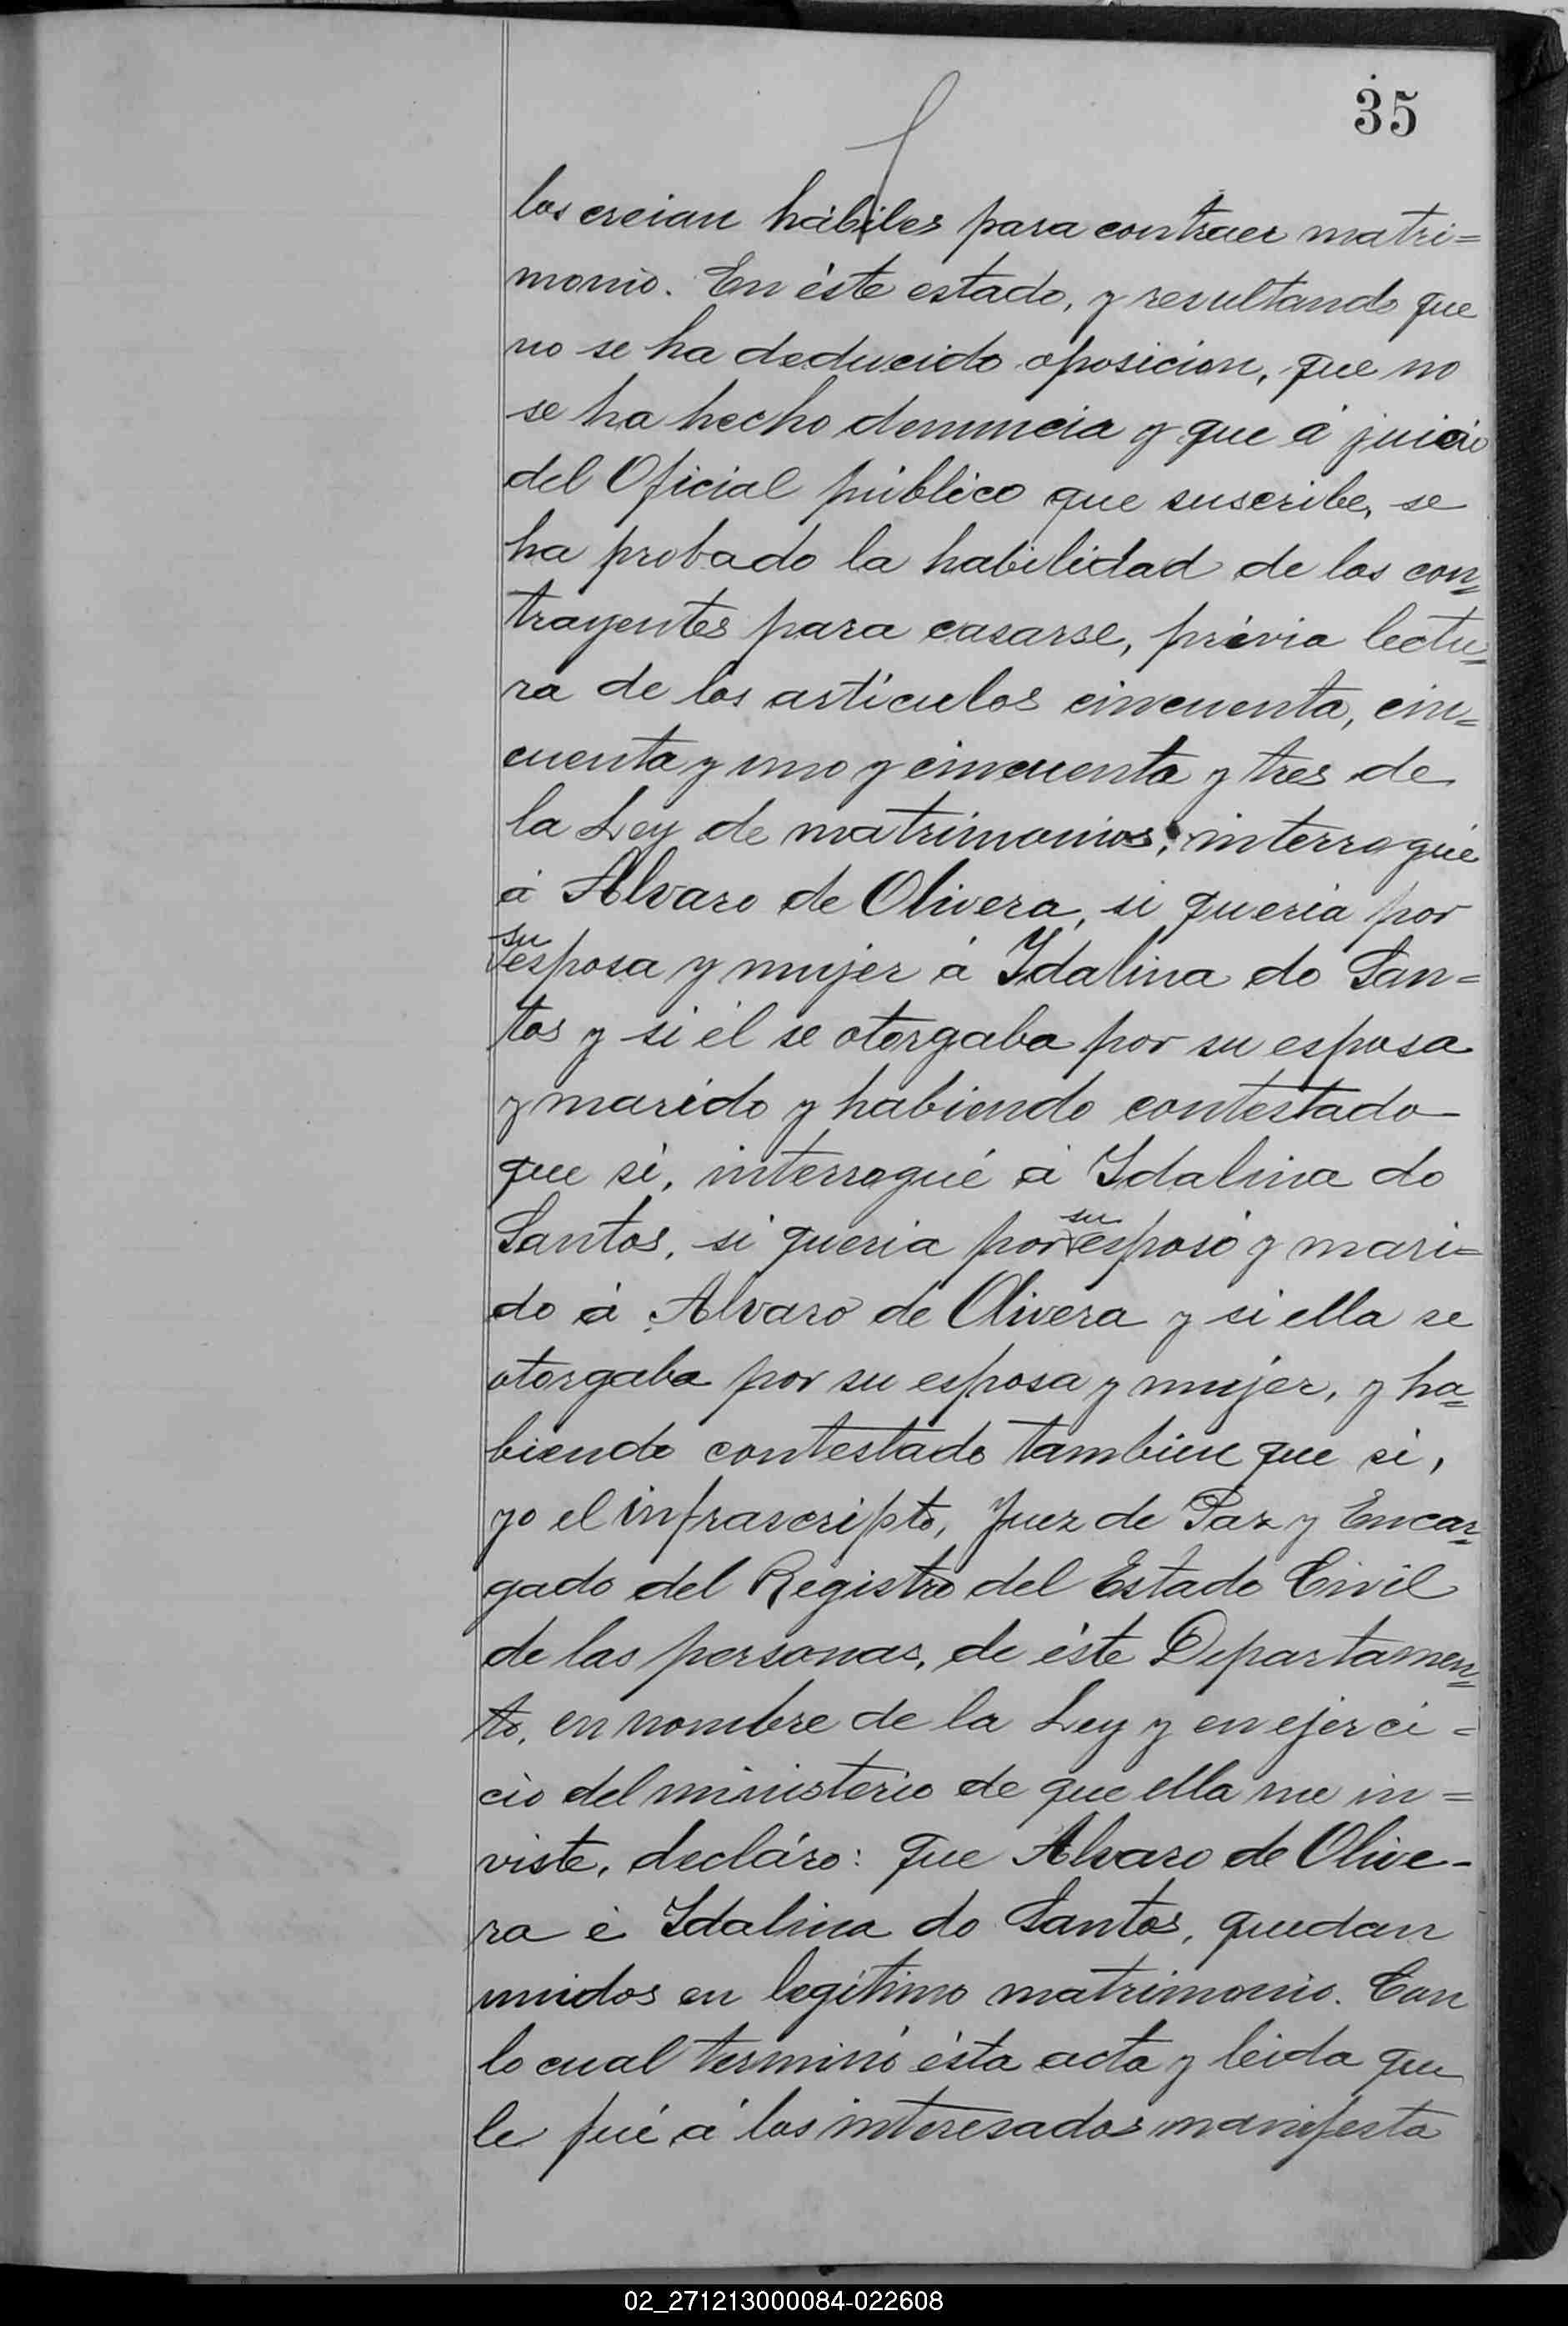 35
los creian hábiles para contraer matri=
monio. En éste estado, y resultando que
no se ha deducido oposicion, que no
se ha hecho denuncia y que á juicio
del Oficial público que suscribe, se
ha probado la habilidad de los con=
trayentes para casarse, prévia lectu=
ra de los artículos cincuenta, cin=
cuenta y uno y cincuenta y tres de
la Ley de matrimonios; interrogué
á Alvaro de Olivera, si queria por
su
esposa y mujer á Idalina do San=
tos y si él se otorgaba por su esposa
y marido y habiendo contestado
que sí, interrogué á Idalina do
su
Santos, si queria por esposo y mari=
do á Alvaro de Olivera y si ella se
otorgaba por su esposa y mujer, y ha=
biendo contestado tambien que si,
yo el infrascripto, Juez de Paz y Encar=
gado del Registro del Estado Civil
de las personas, de éste Departamen=
to, en nombre de la Ley y en ejerci=
cio del ministerio de que ella me in=
viste, decláro: que Alvaro de Olive-
ra é Idalina do Santos, quedan
unidos en legítimo matrimonio. Con
lo cual terminó ésta acta y leida que
le fué á los interesados manifesta
02_271213000084-022608